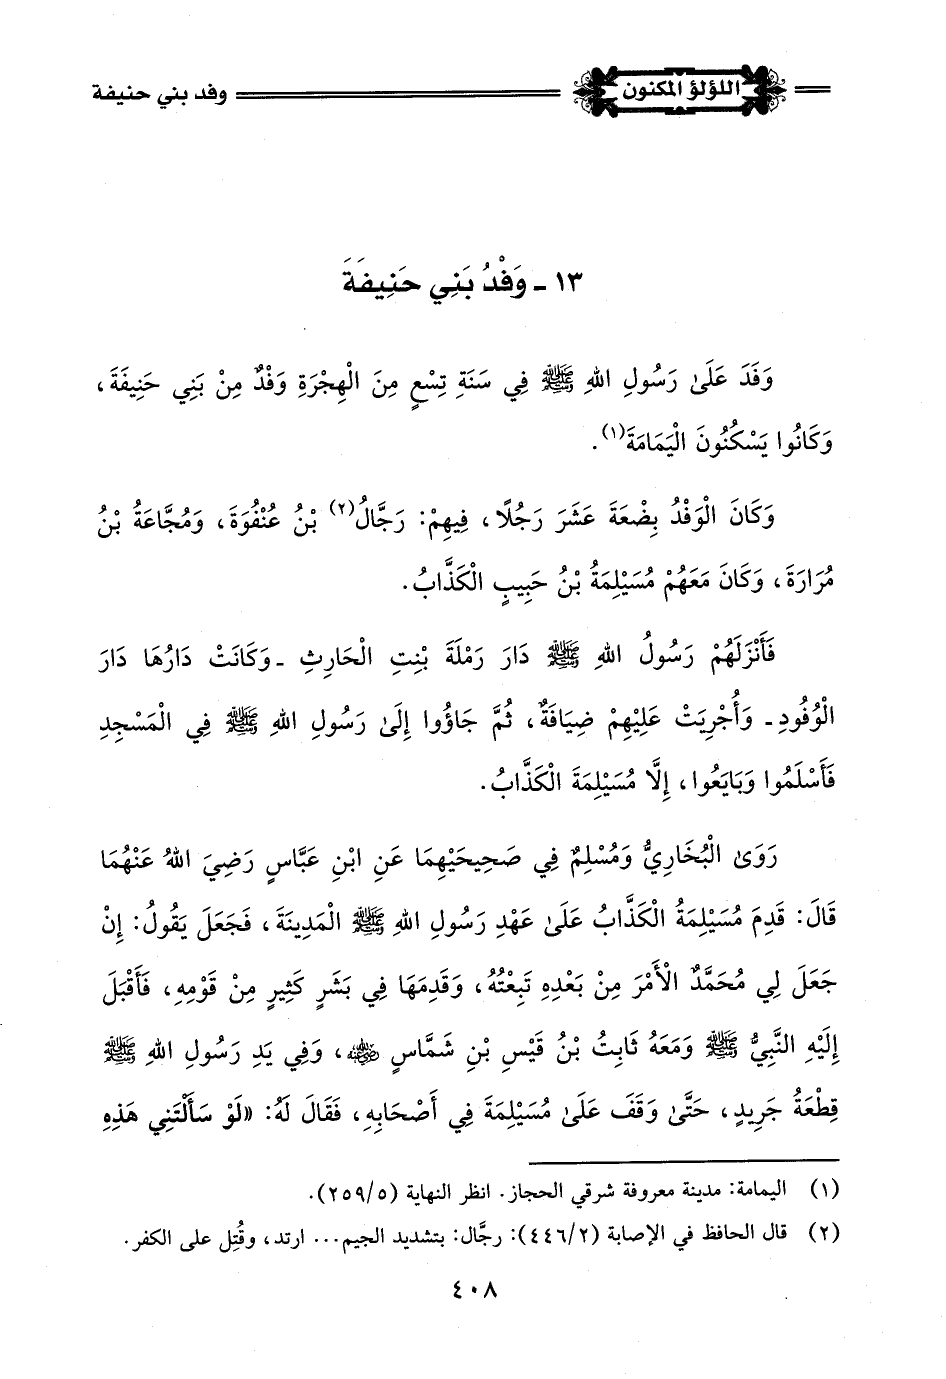 اللؤلؤ المكنون وفد بني حنيفة
١٣ - وَفْدُ بَنِي حَنِيفَةَ
وَفَدَ عَلَىٰ رَسُولِ اللهِ ﷺ فِي سَنَةِ تِسْعٍ مِنَ الْهِجْرَةِ وَفْدٌ مِنْ بَنِي حَنِيفَةَ،
وَكَانُوا يَسْكُنُونَ الْيَمَامَةَ(١).
وَكَانَ الْوَفْدُ بِضْعَةَ عَشَرَ رَجُلًا، فِيهِمْ: رَجَّالُ(٢) بْنُ عُنْفُوَةَ، وَمُجَّاعَةُ بْنُ
مُرَارَةَ، وَكَانَ مَعَهُمْ مُسَيْلِمَةُ بْنُ حَبِيبٍ الْكَذَّابُ.
فَأَنْزَلَهُمْ رَسُولُ اللهِ ﷺ دَارَ رَمْلَةَ بِنْتِ الْحَارِثِ -وَكَانَتْ دَارُهَا دَارَ
الْوُفُودِ- وَأُجْرِيَتْ عَلَيْهِمْ ضِيَافَةٌ، ثُمَّ جَاؤُوا إِلَىٰ رَسُولِ اللهِ ﷺ فِي الْمَسْجِدِ
فَأَسْلَمُوا وَبَايَعُوا، إِلَّا مُسَيْلِمَةَ الْكَذَّابُ.
رَوَىٰ الْبُخَارِيُّ وَمُسْلِمٌ فِي صَحِيحَيْهِمَا عَنِ ابْنِ عَبَّاسٍ رَضِيَ اللهُ عَنْهُمَا
قَالَ: قَدِمَ مُسَيْلِمَةُ الْكَذَّابُ عَلَىٰ عَهْدِ رَسُولِ اللهِ ﷺ الْمَدِينَةَ، فَجَعَلَ يَقُولُ: إِنْ
جَعَلَ لِي مُحَمَّدٌ الْأَمْرَ مِنْ بَعْدِهِ تَبِعْتُهُ، وَقَدِمَهَا فِي بَشَرٍ كَثِيرٍ مِنْ قَوْمِهِ، فَأَقْبَلَ
إِلَيْهِ النَّبِيُّ ﷺ وَمَعَهُ ثَابِتُ بْنُ قَيْسِ بْنِ شَمَّاسٍ رضي الله عنه، وَفِي يَدِ رَسُولِ اللهِ ﷺ
قِطْعَةُ جَرِيدٍ، حَتَّىٰ وَقَفَ عَلَىٰ مُسَيْلِمَةَ فِي أَصْحَابِهِ، فَقَالَ لَهُ: «لَوْ سَأَلْتَنِي هَذِهِ
(١) اليمامة: مدينة معروفة شرقي الحجاز. انظر النهاية (٢٥٩/٥).
(٢) قال الحافظ في الإصابة (٤٤٦/٢): رجَّال: بتشديد الجيم... ارتد، وقُتِل على الكفر.
٤٠٨